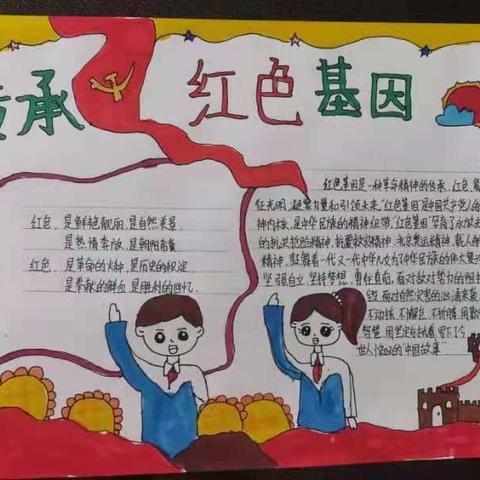 传承 红色基因
红色,是鲜艳靓丽,是自然美景,
是热情奔放,是朝阳希冀
红色,是革命的火种,是历史的积淀,
是奉献的鲜血,是胜利的回忆.
红色基因是一种革命精神的传承,红色,象
征光明,凝聚力量和引领未来,"红色基因"是中国共产党人的
神内核,是中华民族的精神纽带,"红色基因"孕育了永放光
的抗洪抢险精神,抗震救灾精神,北京奥运精神,载人航
精神,激励着一代又一代中华儿女为了中华民族的伟大复兴
坚强自立,坚持梦想,勇往直前,面对敌对势力的阻
毁,面对自然灾害的汹涌来袭
不动摇,不懈怠,不折腾,用勤
智慧,用坚定与执着,写下了令
世人惊叹的"中国故事"